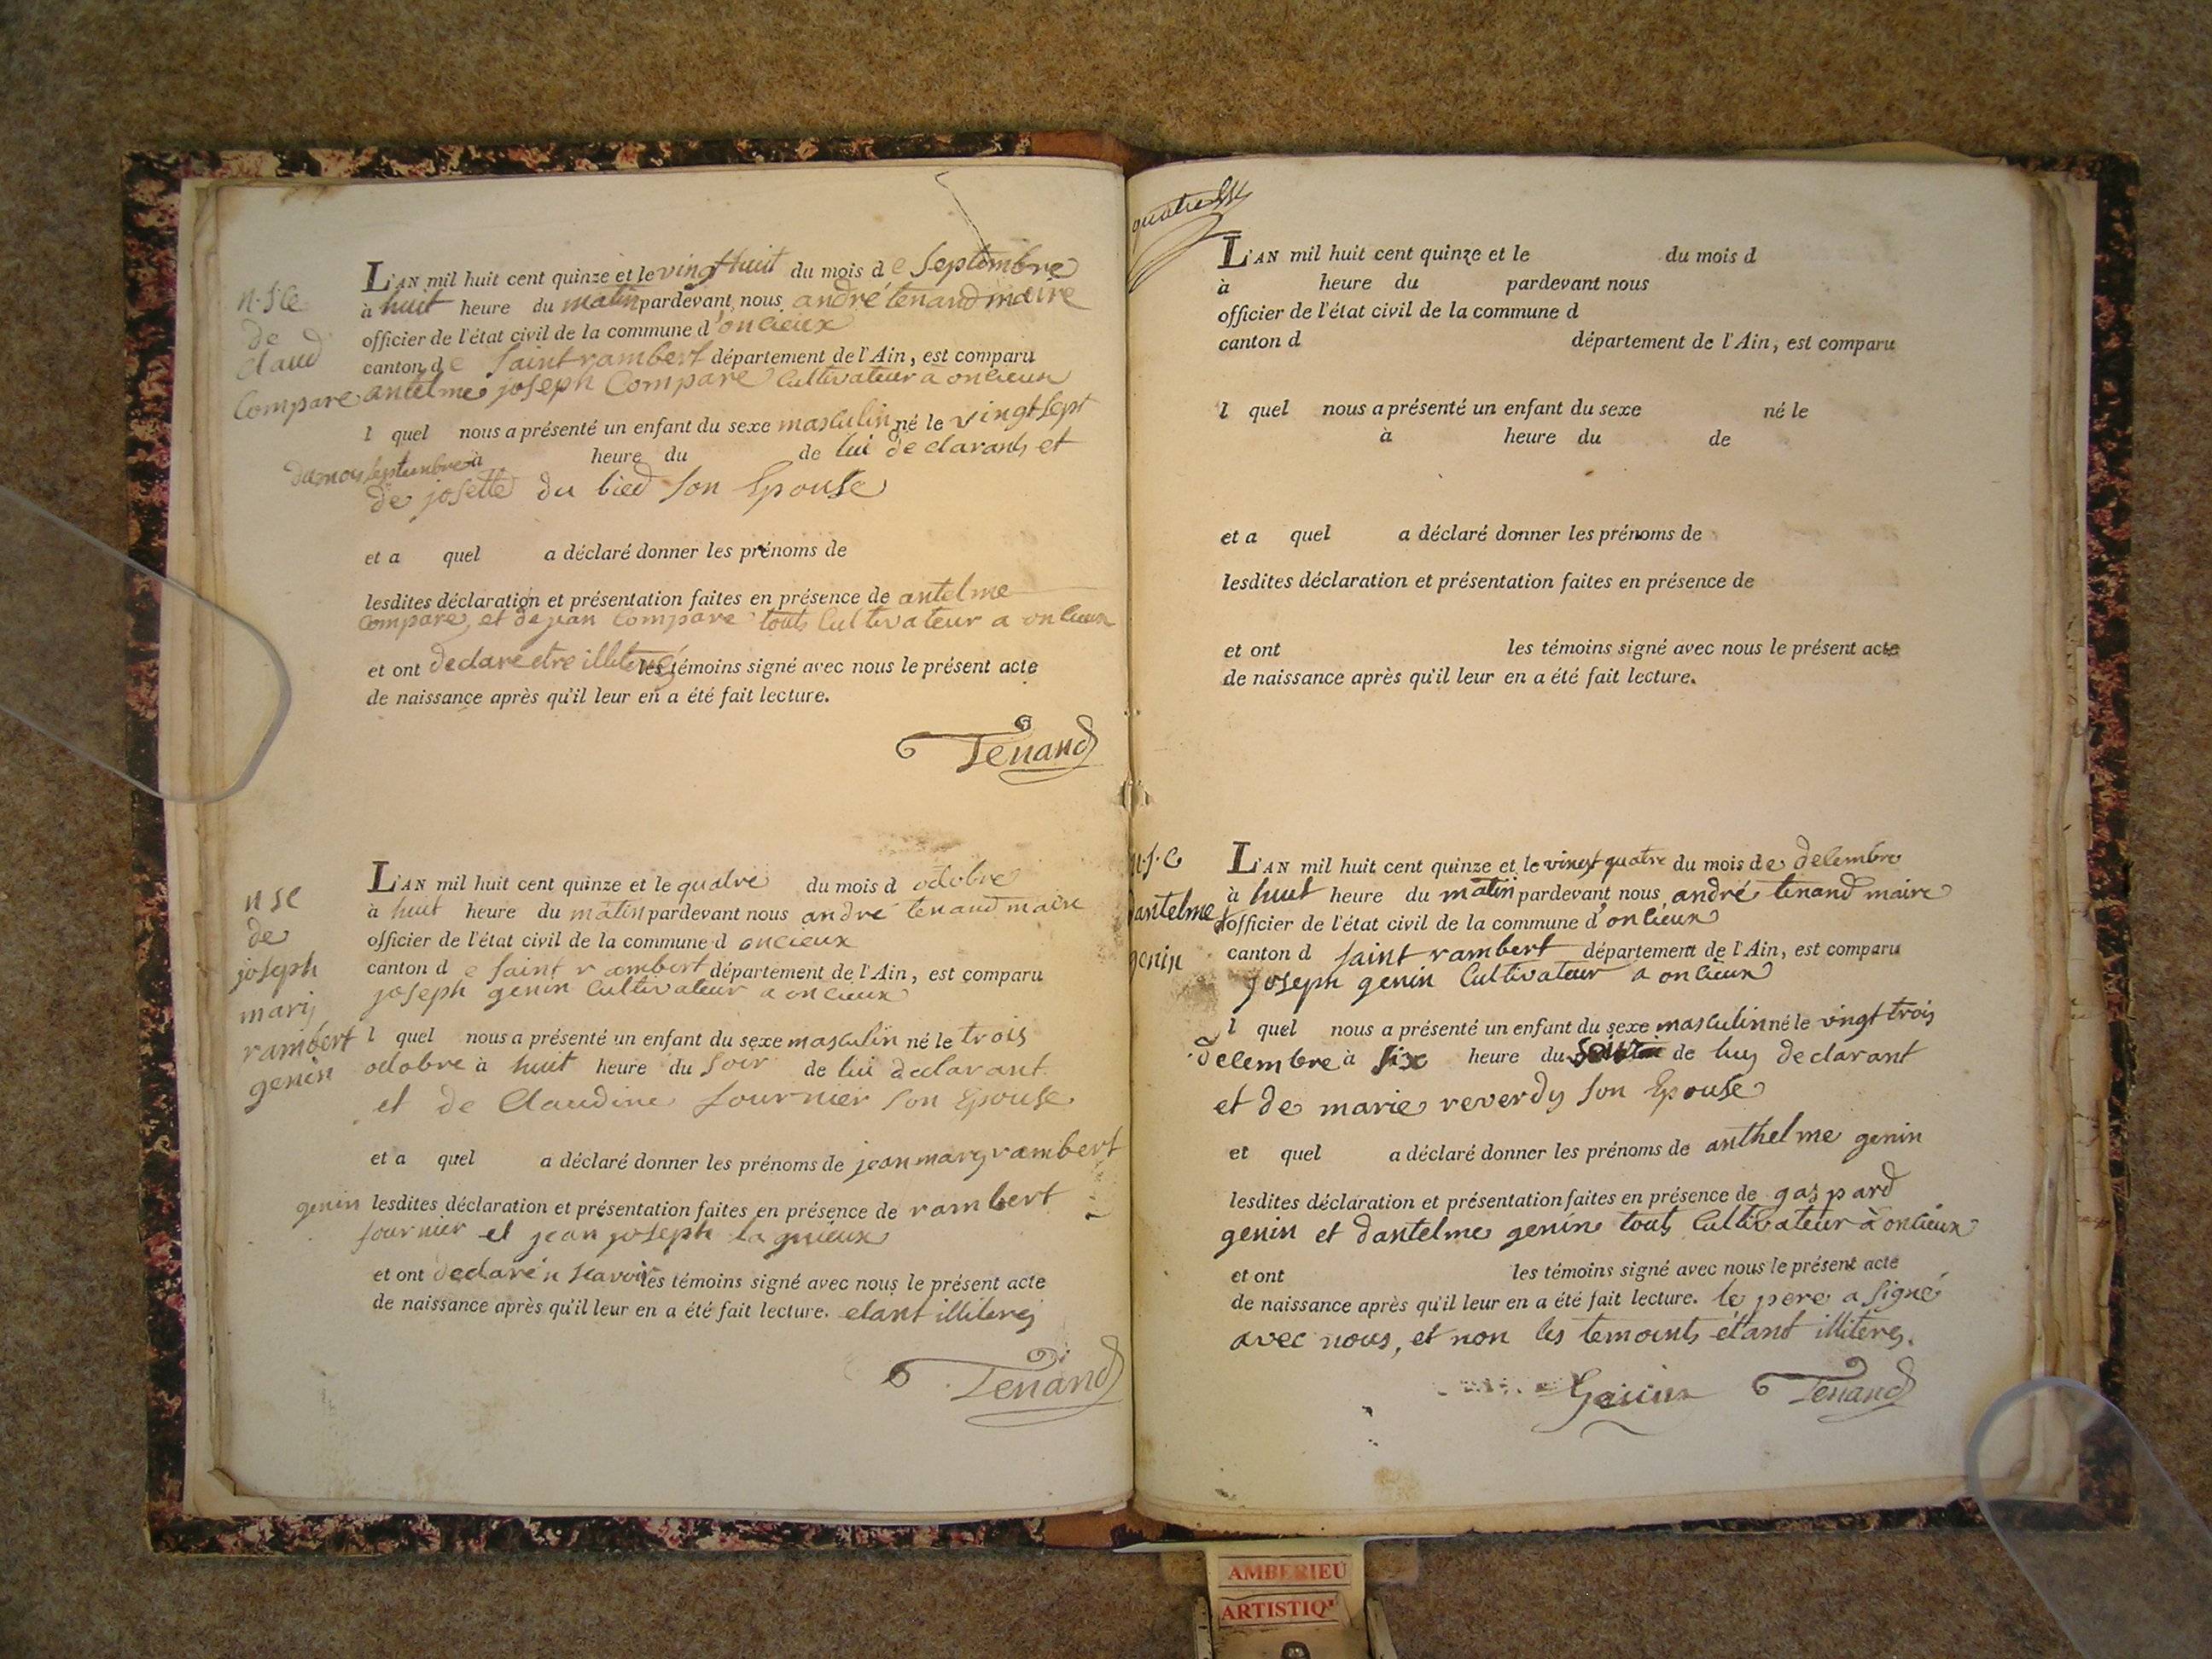 n. sce
de
claud
Compare
L'AN mil huit cent quinze et le vingthuit du mois de Septembre
à huit heure du matin pardevant nous andré tenand maire
officier de l'état civil de la commune d'oncieux
canton de Saint rambert département de l'Ain, est comparu
antelme joseph Compare Cultivateur a oncieux
l quel nous a présenté un enfant du sexe masculin né le vingt sept
du mois septembre à heure du de lui declarants et
de josette du bied son Epouse
et a quel a déclaré donner les prénoms de
lesdites déclaration et présentation faites en présence de antelme
Compare, et de jean Compare touts Cultivateur a oncieux
et ont declare etre illiteré les témoins signé avec nous le présent acte
de naissance après qu'il leur en a été fait lecture.
Tenand
n sc
de
joseph
marij
rambert
genin
L'AN mil huit cent quinze et le quatre du mois d octobre
à huit heure du matin pardevant nous andré tenand maire
officier de l'état civil de la commune d oncieux
canton d e saint rambert département de l'Ain, est comparu
joseph genin Cultivateur a oncieux
l quel nous a présenté un enfant du sexe masculin né le trois
octobre à huit heure du soir de lui declarant
et de Claudine fournier son Epouse
et a quel a déclaré donner les prénoms de jean mary rambert
genin lesdites déclaration et présentation faites en présence de rambert
fournier et jean joseph lagnieux
et ont declaré n scavoir les témoins signé avec nous le présent acte
de naissance après qu'il leur en a été fait lecture. etant illiterej
Tenand
quatre
L'AN mil huit cent quinze et le du mois d
à heure du pardevant nous
officier de l'état civil de la commune d
canton d département de l'Ain, est comparu
l quel nous a présenté un enfant du sexe né le
à heure du de
et a quel a déclaré donner les prénoms de
lesdites déclaration et présentation faites en présence de
et ont les témoins signé avec nous le présent acte
de naissance après qu'il leur en a été fait lecture.
n. s. c
dantelme
genin
L'AN mil huit cent quinze et le vingt quatre du mois de decembre
à huit heure du matin pardevant nous andré tenand maire
officier de l'état civil de la commune d'oncieux
canton d saint rambert département de l'Ain, est comparu
joseph genin Cultivateur a oncieux
l quel nous a présenté un enfant du sexe masculin né le vingt trois
decembre à six heure du de luy declarant
et de marie reverdy son Epouse
et quel a déclaré donner les prénoms de anthelme genin
lesdites déclaration et présentation faites en présence de gaspard
genin et dantelme genin touts Cultivateur à oncieux
et ont les témoins signé avec nous le présent acte
de naissance après qu'il leur en a été fait lecture. le pere a signé
avec nous, et non les temoints étant illiterej.
Genin Tenand
AMBERIEU
ARTISTIQ